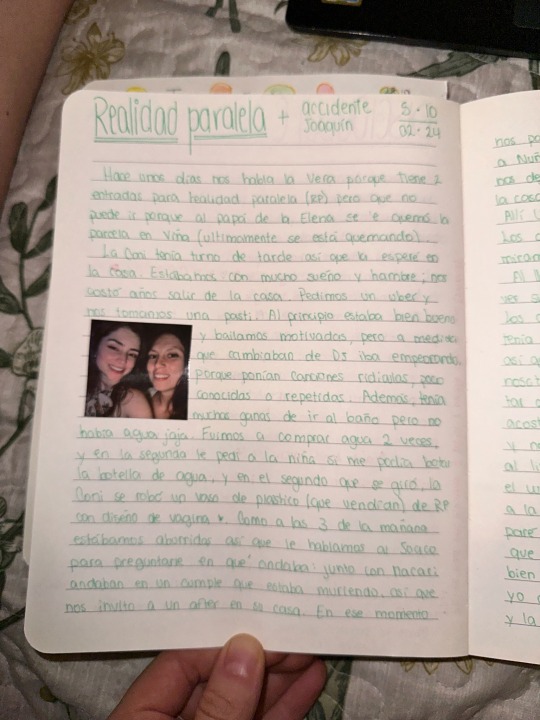 Realidad paralela + accidente Joaquín
S. 10
02. 24
Hace unos días nos habla la Vera porque tiene 2
entradas para realidad paralela (RP) pero que no
puede ir porque al papá de la Elena se le quemó la
parcela en Viña (ultimamente se está quemando).
La Coni tenía turno de tarde así que la esperé en
la casa. Estábamos con mucho sueño y hambre; nos
costó años salir de la casa. Pedimos un uber y
nos tomamos una pasti. Al principio estaba bien bueno
y bailamos motivadas, pero a medida
que cambiaban de DJ iba empeorando
porque ponían canciones ridículas, poco
conocidas o repetidas. Además, tenía
muchas ganas de ir al baño pero no
había agua jaja. Fuimos a comprar agua 2 veces,
y en la segunda le pedí a la niña si me podía botar
la botella de agua, y en el segundo que se giró, la
Coni se robó un vaso de plástico (que vendían) de RP
con diseño de vagina. Como a las 3 de la mañana
estábamos aburridas así que le hablamos al
para preguntarle en qué andaba: junto con
andaban en un cumple que estaba muriendo, así que
nos invitó a un after en su casa. En ese momento
nos
a Ñuñ
nos de
la casa
Allí
Los
miran
Al
ver
los
tenía
así
nosot
tal
acost
y
al
el
a la
parec
que
bien
yo
y la